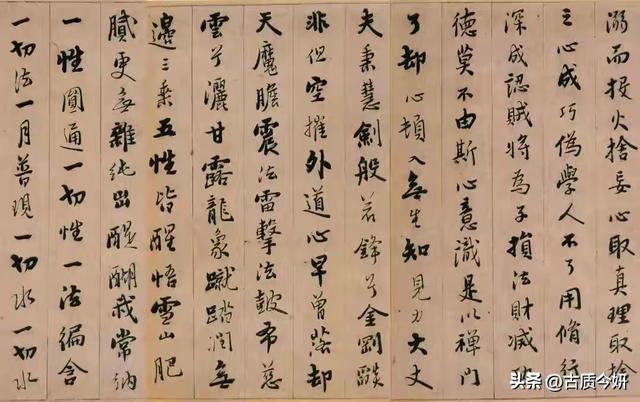 溺而投火捨妄心取真理取捨
之心成巧偽學人不了用脩行
深成認賊將為子損法財滅功
德莫不由斯心意識是以禅門
了却心頓入無生知見力大丈
夫秉慧劍般若鋒兮金剛燄
非但空摧外道心早曾落却
天魔膽震法雷擊法鼓布慈
雲兮灑甘露龍象蹴踏潤無
邊三乘五性皆醒悟雪山肥
膩更無雜純出醍醐我常納
一性圓通一切性一法徧含
一切法一月普現一切水一切水
头条 @古质今妍